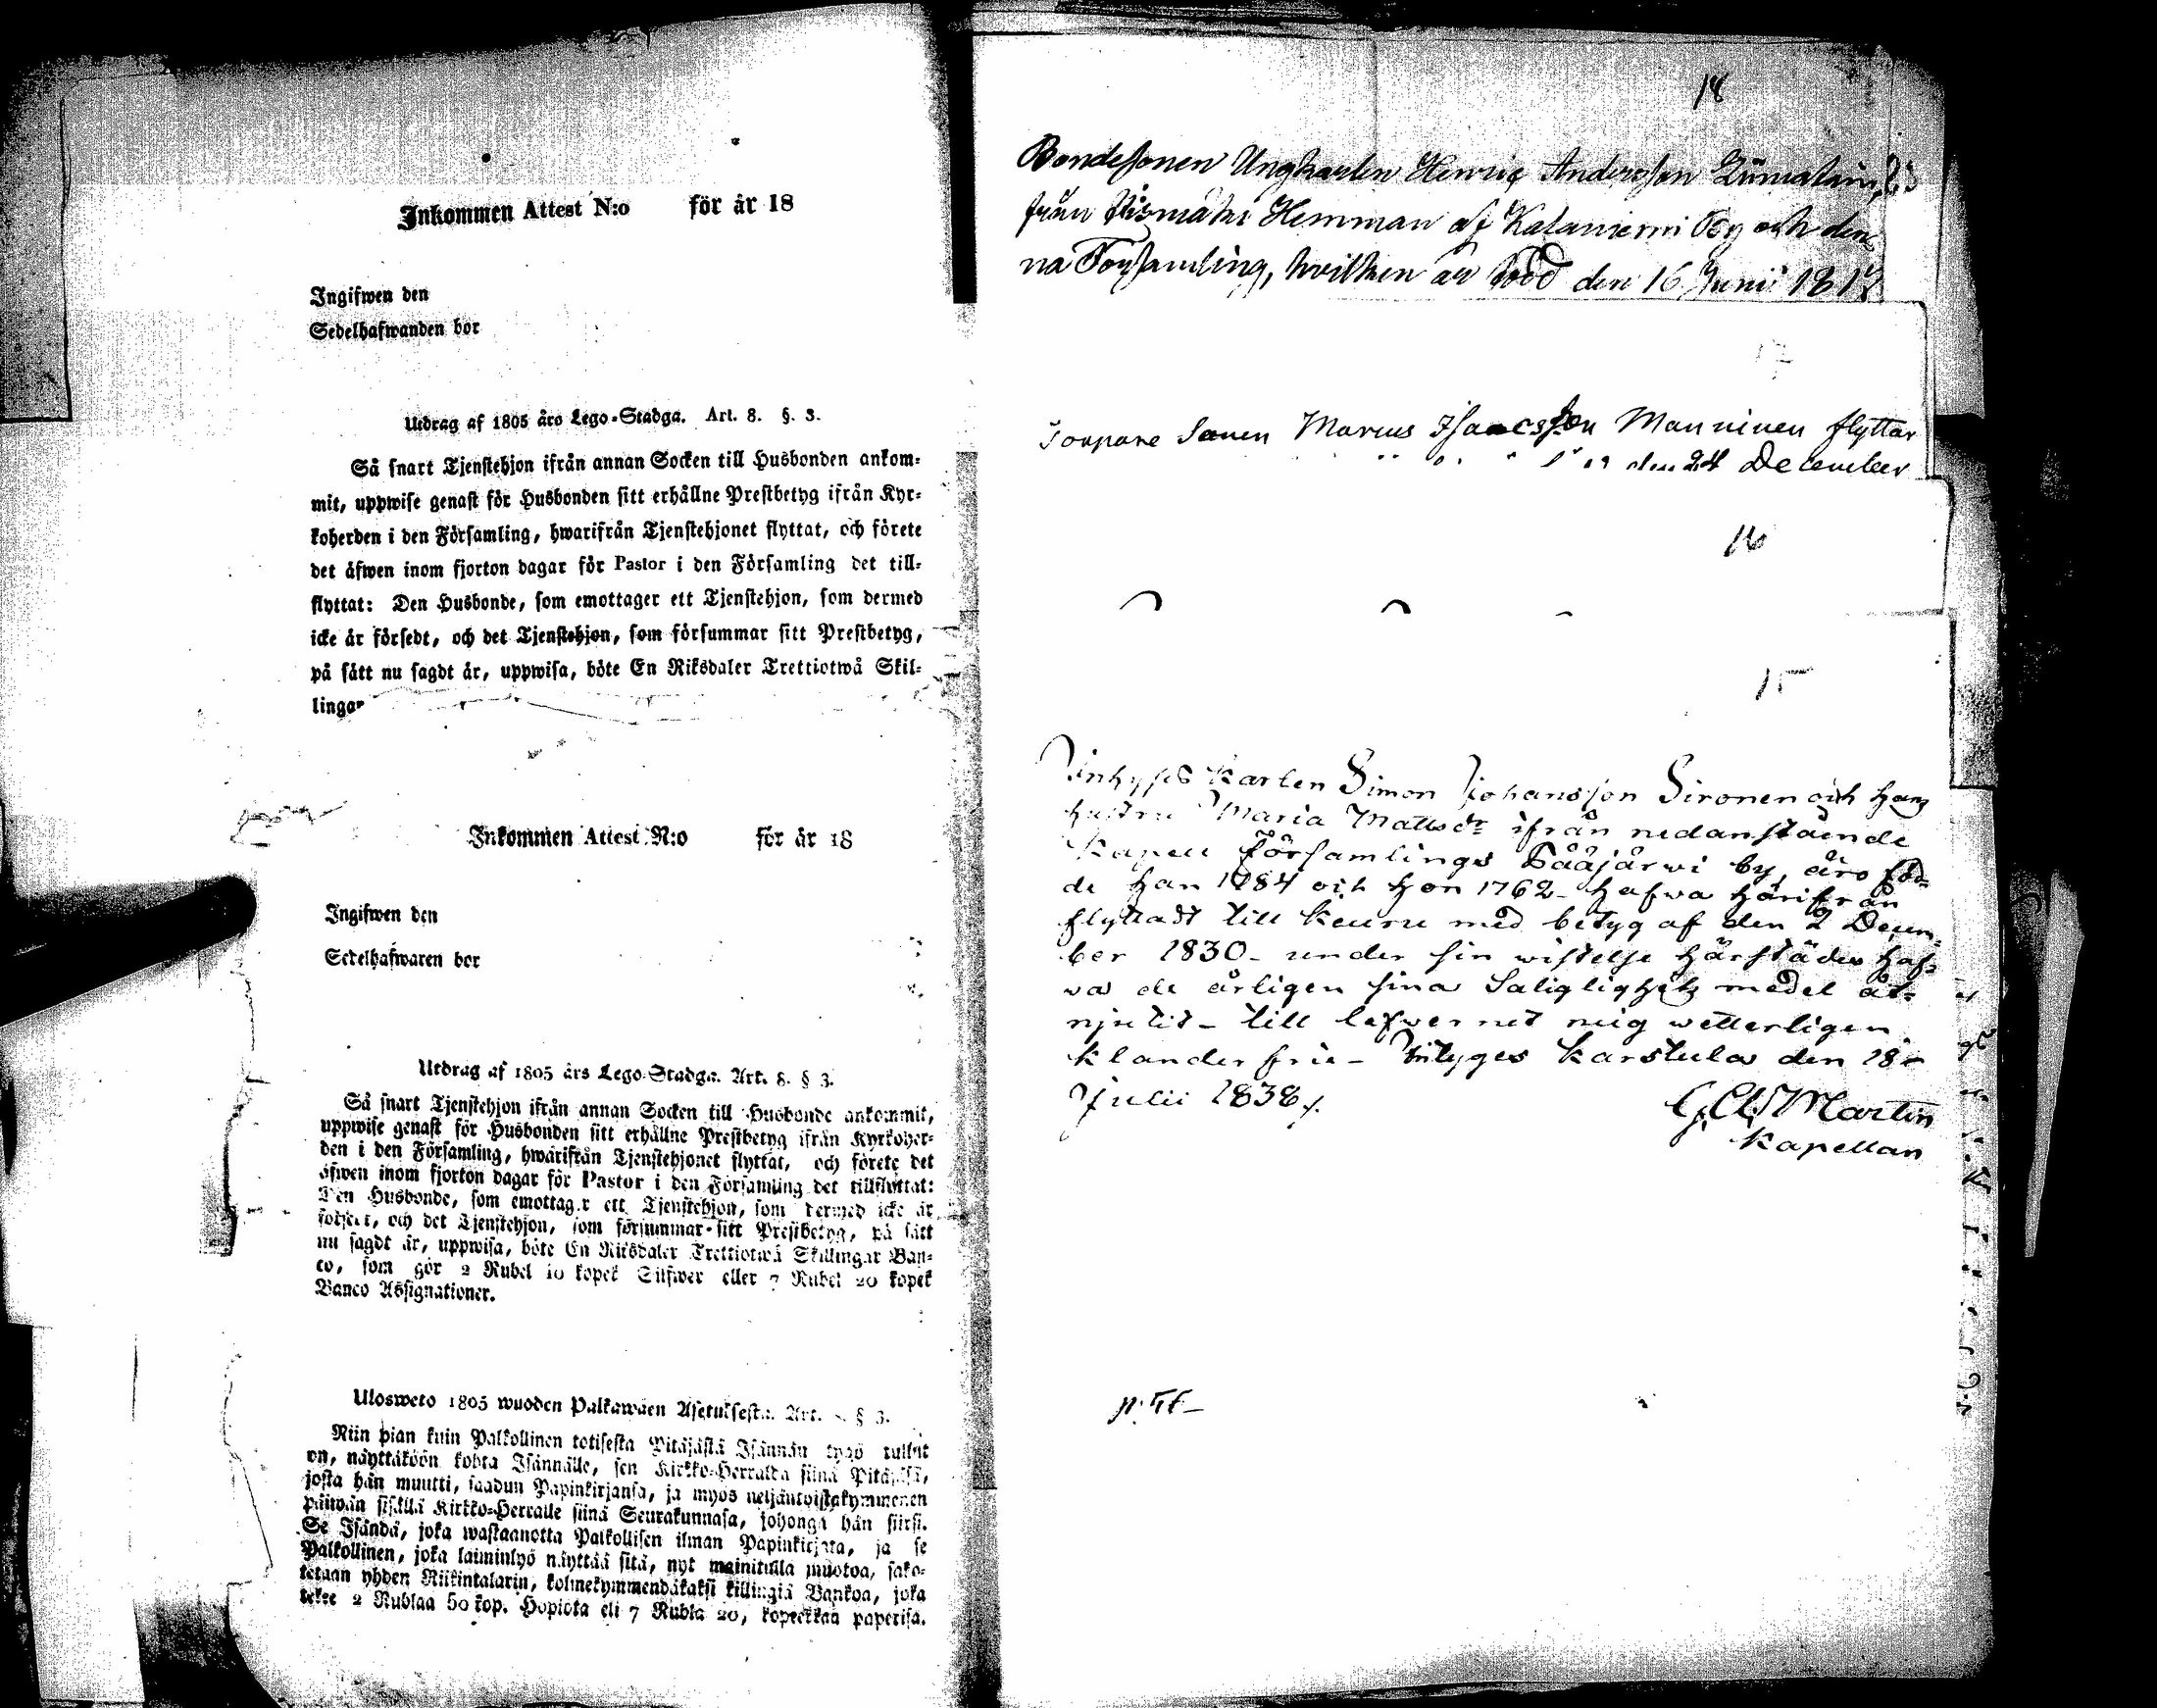 Inkommen Attest N:o för år 18
Ingifwen den
Sedelhafwanden bor
Utdrag af 1805 års Lego-Stadga. Art. 8. §. 3.
Så snart Tjenstehjon ifrån annan Socken till Husbonden ankom-
mit, uppwise genast för Husbonden sitt erhållne Prestbetyg ifrån Kyr-
koherden i den Församling, hwarifrån Tjenstehjonet flyttat, och förete
det äfwen inom fjorton dagar för Pastor i den Församling det till-
flyttat: Den Husbonde, som emottager ett Tjenstehjon, som dermed
icke är försedt, och det Tjenstehjon, som försummar sitt Prestbetyg,
på sätt nu sagdt är, uppwisa, böte En Riksdaler Trettiotwå Skil-
lingar
Inkommen Attest N:o för år 18
Ingifwen den
Sedelhafwaren bor
Utdrag af 1805 års Lego-Stadga. Art. 8. § 3.
Så snart Tjenstehjon ifrån annan Socken till Husbonde ankommit,
uppwise genast för Husbonden sitt erhållne Prestbetyg ifrån Kyrkoher-
den i den Församling, hwarifrån Tjenstehjonet flyttat, och förete det
äfwen inom fjorton dagar för Pastor i den Församling det tillflyttat:
Den Husbonde, som emottager ett Tjenstehjon, som dermed icke är
försedt, och det Tjenstehjon, som försummar sitt Prestbetyg, på sätt
nu sagdt är, uppwisa, böte En Riksdaler Trettiotwå Skillingar Ban-
co, som gör 2 Rubel 10 kopek Silfwer eller 7 Rubel 20 kopek
Banco Assignationer.
Ulosweto 1805 wuoden Palkawäen Asetuksesta. Art. § 3.
Niin pian kuin Palkollinen totisesta Pitäjästä Isännän tygö tullut
on, näyttäköön kohta Isännälle, sen Kirkko-Herralda siinä Pitäjäsä,
josta hän muutti, saadun Papinkirjansa, ja myös neljäntoistakymmenen
päiwän sisällä Kirkko-Herralle siinä Seurakunnasa, johonga hän siirsi.
Se Isändä, joka wastaanotta Palkollisen ilman Papinkirjata, ja se
Palkollinen, joka laiminlyö näyttää sitä, nyt mainitulla muotoa, sako-
tetaan yhden Riikintalarin, kolmekymmendäkaksi killingiä Bankoa, joka
tekee 2 Rublaa 50 kop. Hopiota eli 7 Rubla 20, kopeekkaa paperisa.
18
Bondesonen Ungkarlen Henric Andersson
från Hemman af Kalaniemi By och den-
na Församling, hvilken är född den 16 Junii 1817
17
Torpare Sonen Marcus Isaacsson Manninen flyttar
den 24 December
16
15
Inhyses Karlen Simon Johansson Sironen och hans
hustru Maria Mattsdr ifrån nedanstående
Kapell Församlings Pääjärwi by, äro föd-
de han 1784 och hon 1762 - hafwa härifrån
flyttadt till Keuru med betyg af den 2 Decem-
ber 1830 - under sin wistelse härstädes haf-
wa de årligen sina Saliglighets medel åt-
njutit - till lefwernet mig wetterligen
klanderfrie - Betyges Karstula den 18
Julii 1838
Martin
Kapellan